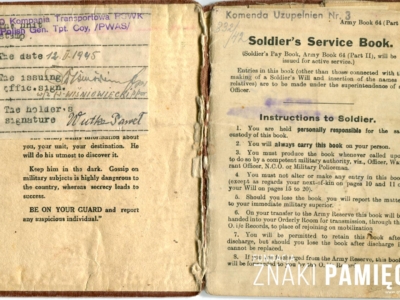 Kompania Transportowa PCWK
Polish Gen. Tpt. Coy, /PWAS/
The date 12. 1945
The issuing
offic. sign.
The holder's
signature
information about
you, your unit, your destination. He
will do his utmost to discover it.
Keep him in the dark. Gossip on
military subjects is highly dangerous to
the country, whereas secrecy leads to
success.
BE ON YOUR GUARD and report
any suspicious individual."
Komenda Uzupełnień Nr. 3
Army Book 64 (Part
Soldier's Service Book.
(Soldier's Pay Book, Army Book 64 (Part II), will be
issued for active service.)
Entries in this book (other than those connected with
making of a Soldier's Will and insertion of the names
relatives) are to be made under the superintendence of
Officer.
Instructions to Soldier.
1. You are held personally responsible for the
custody of this book.
2. You will always carry this book on your person.
3. You must produce the book whenever called upon
to do so by a competent military authority, viz., Officer, Warrant
Officer, N.C.O. or Military Policeman.
4. You must not alter or make any entry in this book
(except as regards your next-of-kin on pages 10 and 11
your Will on pages 15 to 20).
5. Should you lose the book, you will report the matter
to your immediate military superior.
6. On your transfer to the Army Reserve this book will
handed into your Orderly Room for transmission, through the
O. i/c Records, to place of rejoining on mobilization.
7. You will be permitted to retain this book after
discharge, but should you lose the book after discharge it
cannot be replaced.
8. If you are discharged from the Army Reserve, this book
will be forwarded to you by the O. i/c Records.
FUNDACJA
ZNAKI PAMIĘCI